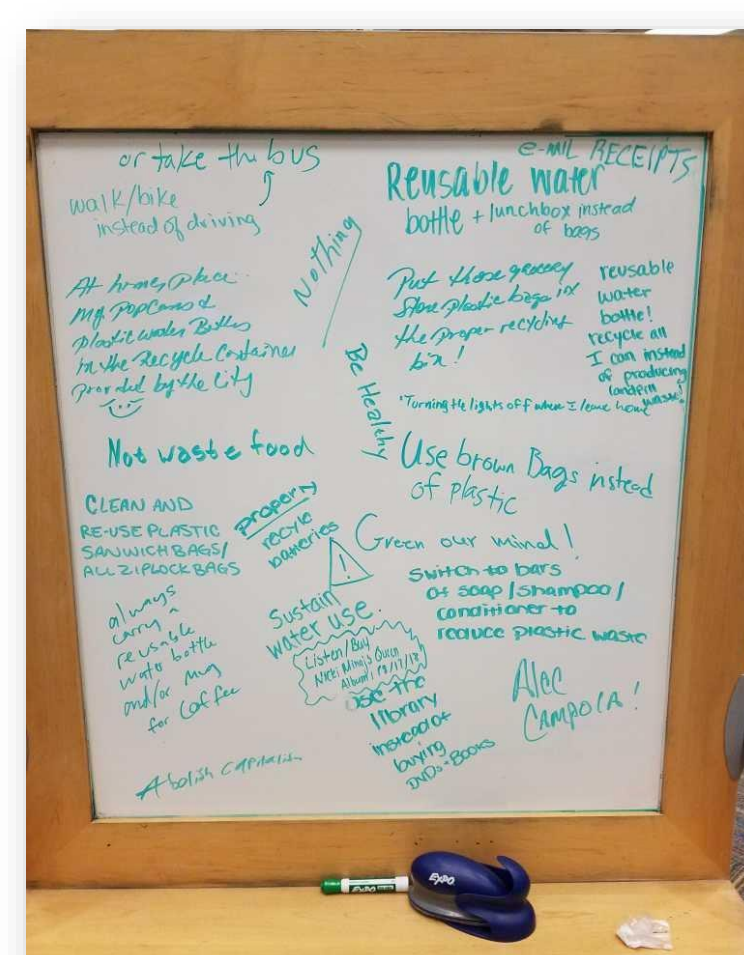 or take the bus
walk/bike
instead of driving
Nothing
e-mIL RECEIPTS
Reusable water
bottle + lunchbox instead
of bags
At home, place
my PopCans &
Plastic water Bottles
in the Recycle Container
provided by the City
Put those grocery
Store plastic bags in
the proper recyclist
bin!
reusable
water
bottle!
recycle all
I can instead
of producing
landfill
waste!
Be Healthy
Turning the lights off when I leave home
Not waste food
Use brown Bags instead
of plastic
CLEAN AND
RE-USE PLASTIC
SANWICH BAGS/
ALL ZIPLOCK BAGS
properly
recyle
batteries
Green our mind!
!
Switch to bars
of soap/shampoo/
conditioner to
reduce plastic waste
always
carry a
reusable
water bottle
and/or mug
for coffee
Sustain
water use.
Listen/Buy
Nicki Minaj's Queen
Album!
use the
library
instead of
buying
DVDs + BOOKS
Alec
CAMPOLA!
Abolish capitalism
EXPO
EXPO